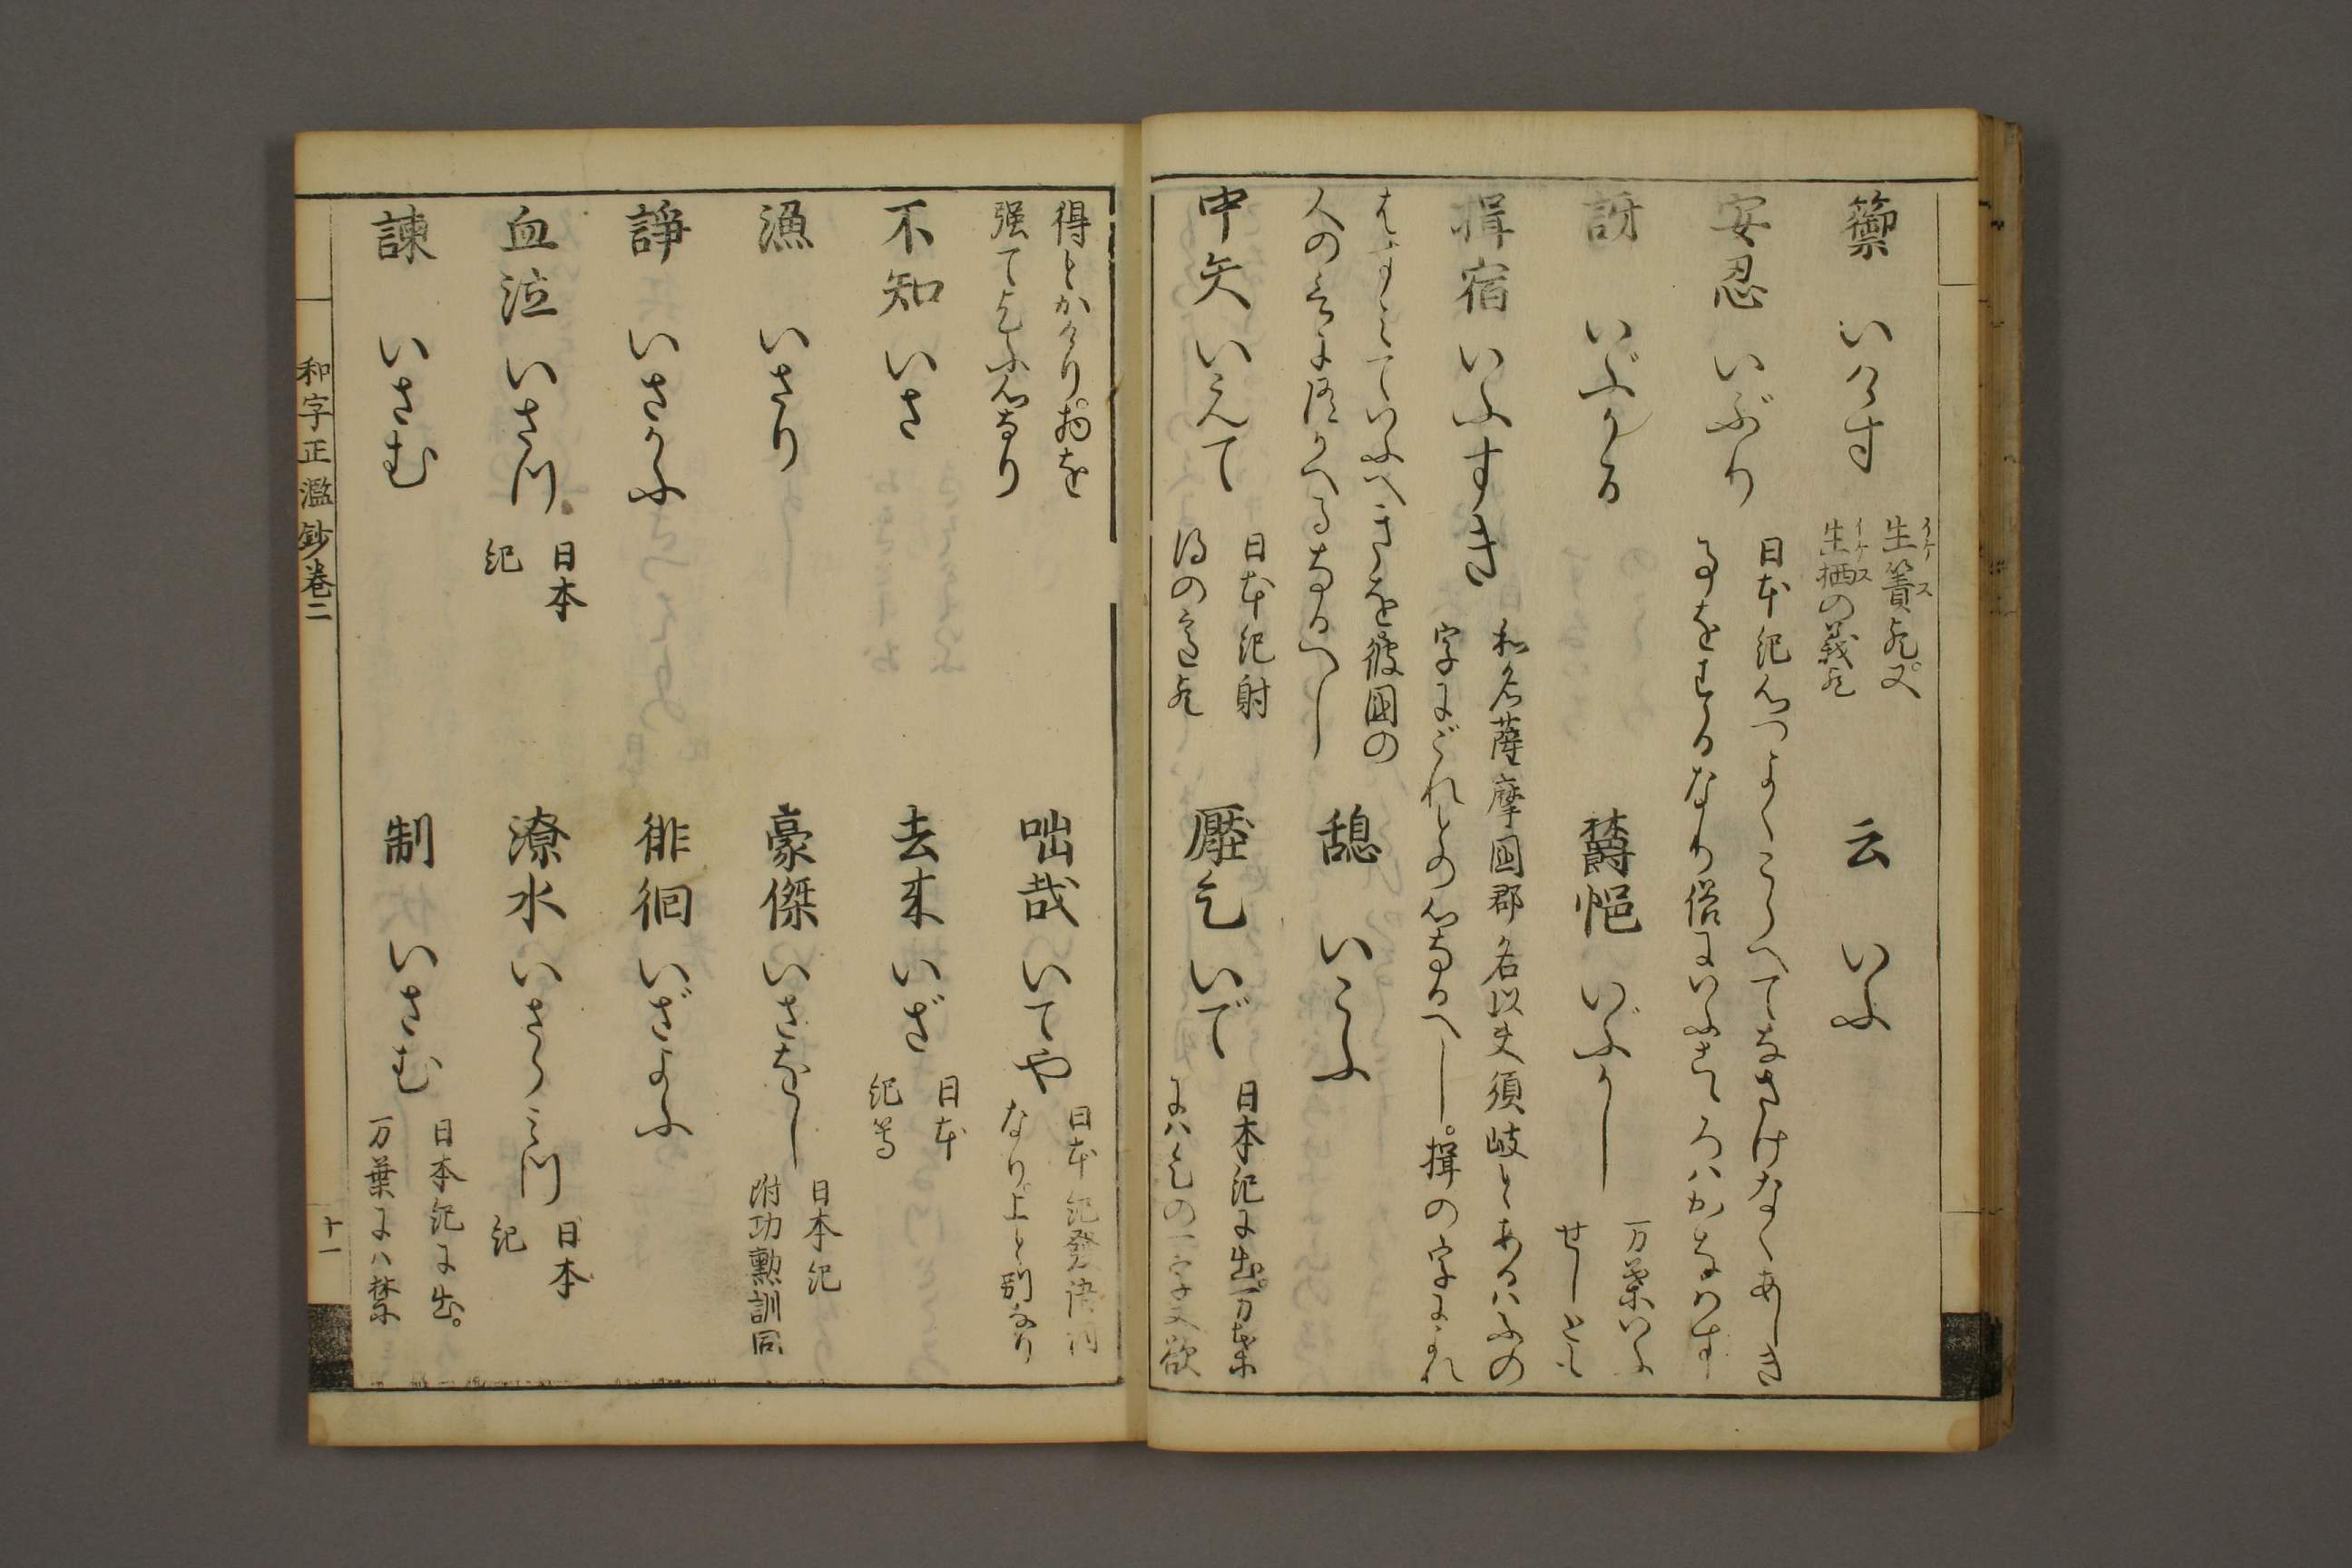 籞 いけす 生簀也。又
生栖の義也
イケス
イケス
云 いふ
安忍 いぶり 日本紀心つよくこらへてなさけなくあしき
事をするなり俗にいふさいろハかなわす
訝 いぶかる
欝悒 いぶかし 万葉いふ
せしとも
揖宿 いふすき 和名薩摩國郡名以夫須岐とあるハふの
字にごれとの心なるへし。揖の字によれ
はすみていふへきを彼國の
人の言に依かへるなるへし
憩 いこふ
中矢 いえて 日本紀射
得の意也
壓乞 いで 日本紀に出。万葉
にハ乞の一字又欲
得とかけり。物を
強て乞ふ心なり
咄哉 いてや 日本紀發語詞
なり。上と別なり
不知 いさ
去来 いざ 日本
紀等
漁 いさり
豪傑 いさをし 日本紀
附功勲訓同
諍 いさかふ
徘徊 いざよふ
血泣 いさつ 日本
紀
潦水 いさらみつ 日本
紀
諫 いさむ
制 いさむ 日本紀に出。
万葉にハ禁
和字正濫鈔 卷二
十一